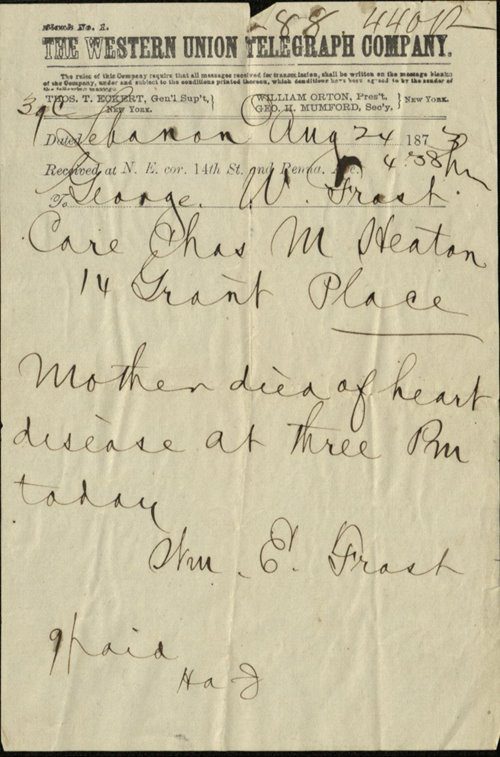 Blank No. 1.
88 44012
THE WESTERN UNION TELEGRAPH COMPANY.
The rules of this Company require that all messages received for transmission, shall be written on the message blanks
of the Company, under and subject to the conditions printed thereon, which conditions have been agreed to by the sender of
the following message.
THOS. T. ECKERT, Gen'l Sup't, NEW YORK. WILLIAM ORTON, Pres't, GEO. H. MUMFORD, Sec'y, NEW YORK.
Dated Lebanon Aug 24 187
Received at N. E. cor. 14th St. and Penna. Ave. 4:38 Pm
To George. W. Frost
Care Chas M Heaton
14 Grant Place
Mother died of heart
disease at three Pm
today
Wm. E. Frost
9 Paid